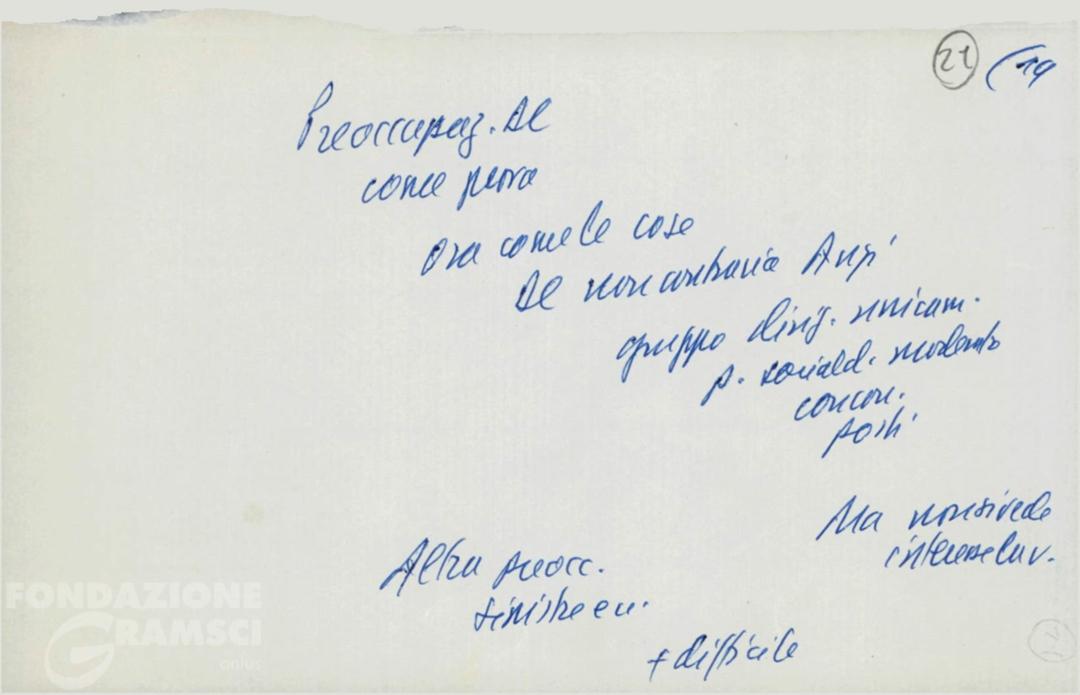 21 (19
Preoccupaz. De
come prova
ora come le cose
De non contraria
gruppo dirig.
p. sociald. moderato
concon.
posti
Ma non si vede
interesse lav.
Altra preocc.
sinistre eu.
+ difficile
FONDAZIONE
GRAMSCI
onlus
21